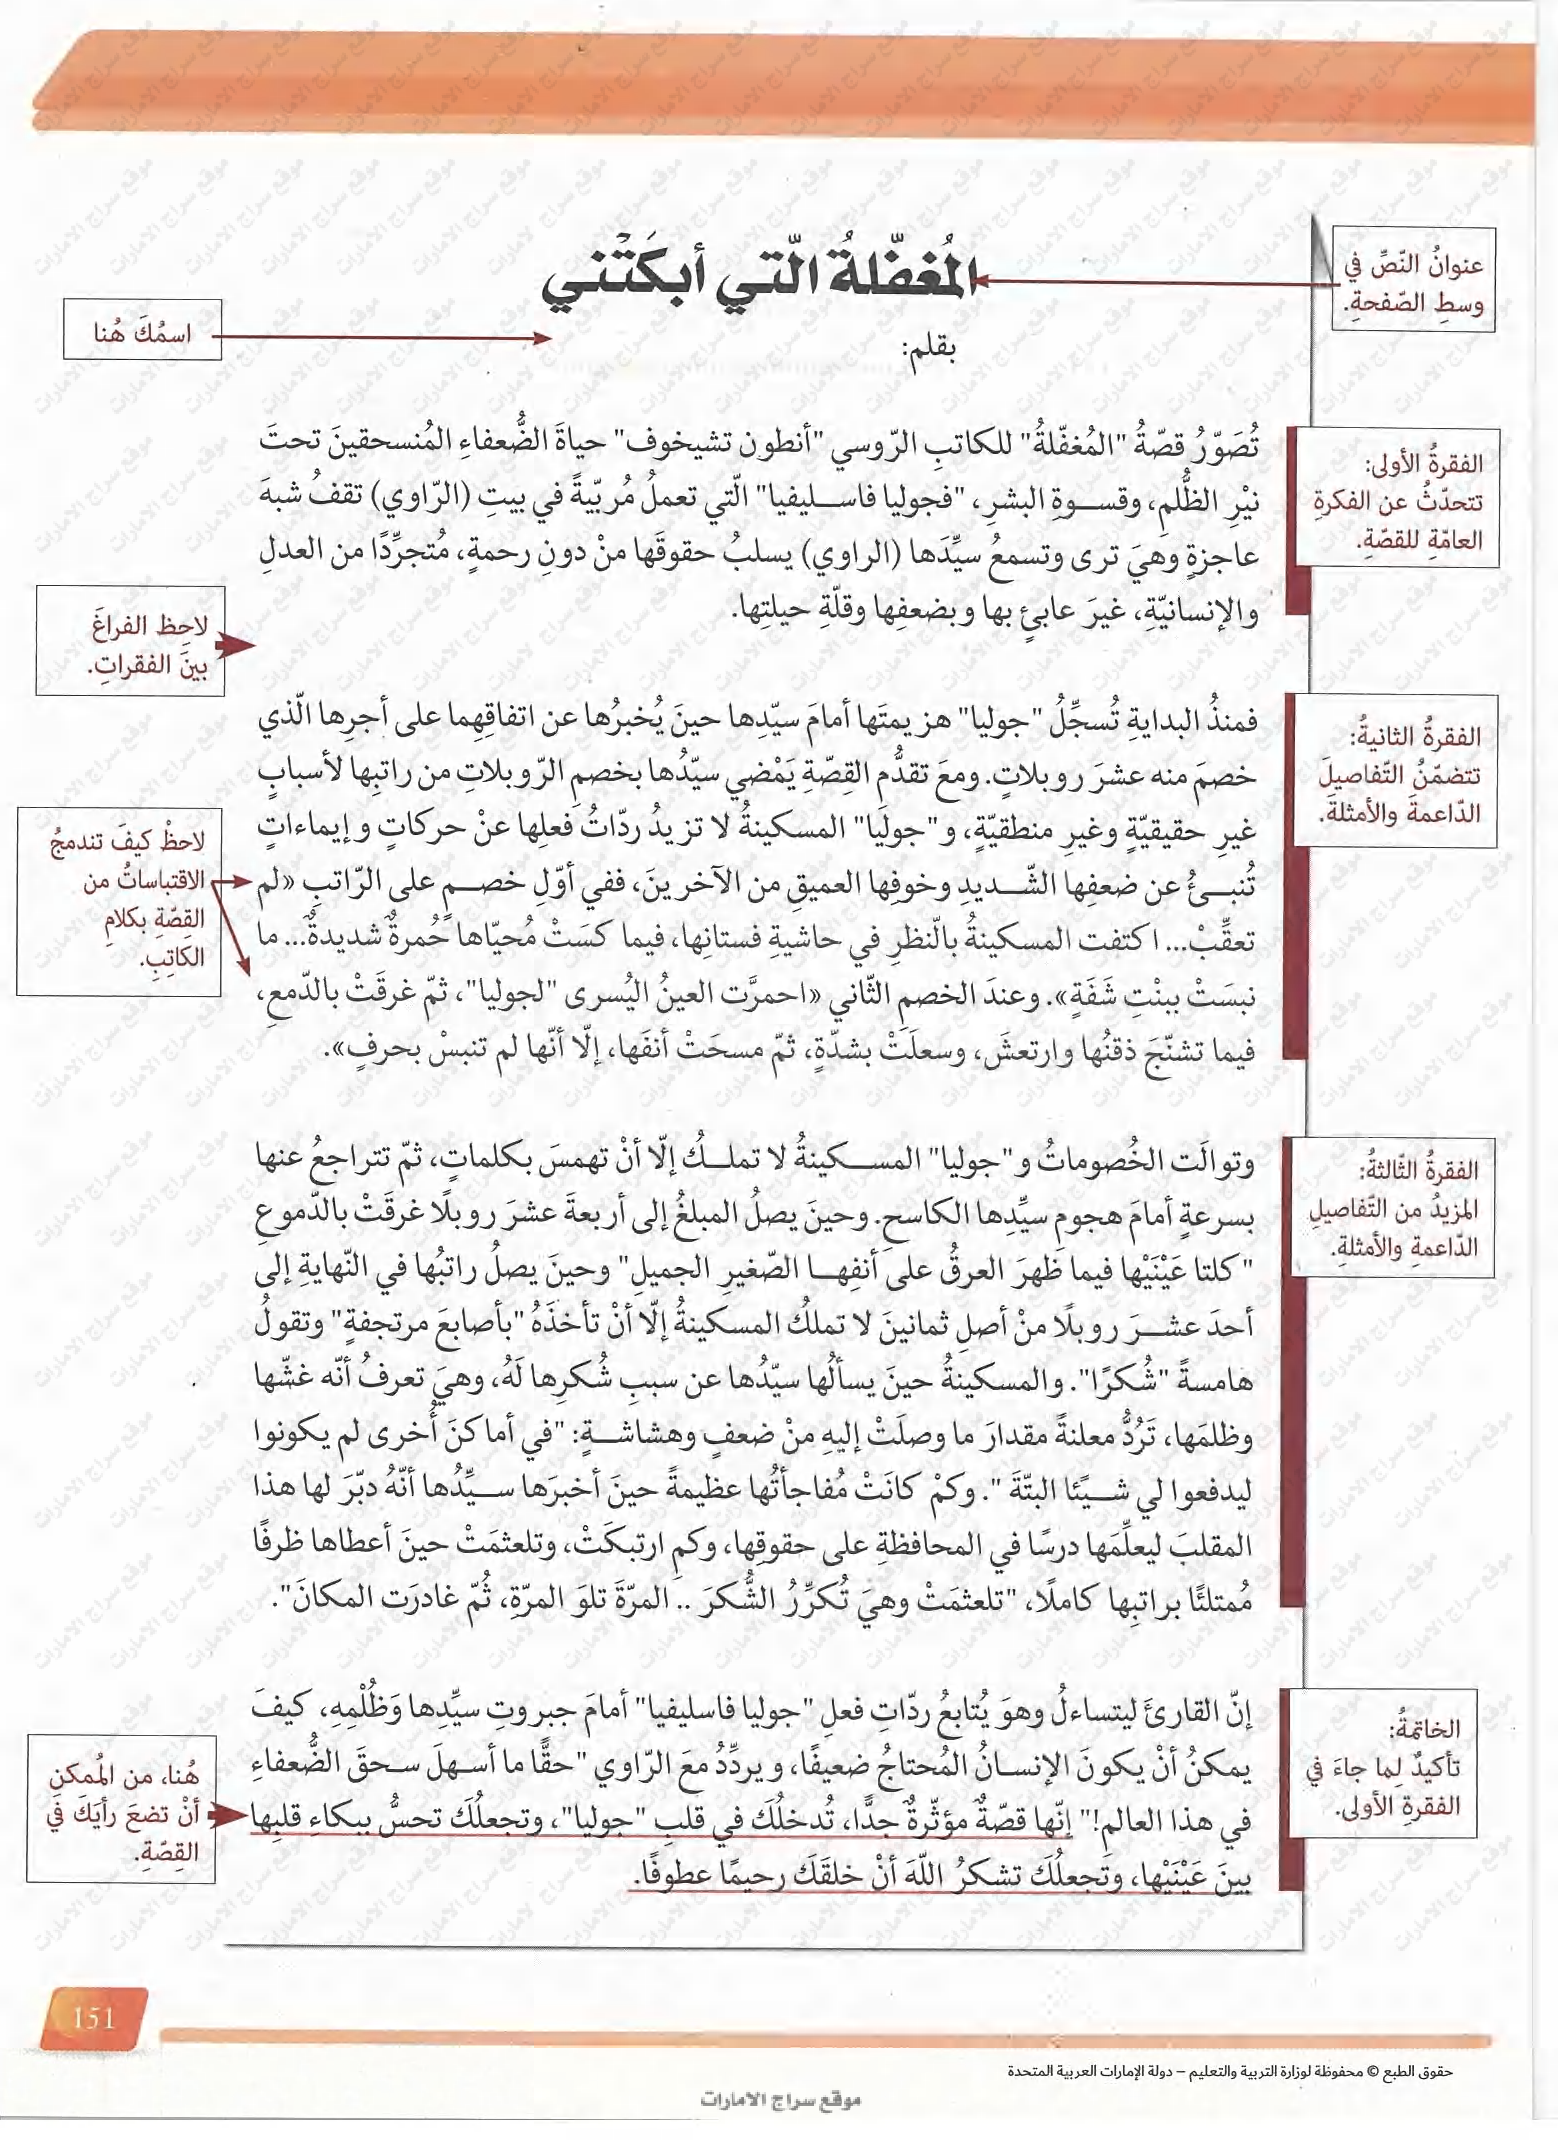 المُغفّلةُ الّتي أبكَتْني
عنوانُ النّصِّ في
وسطِ الصّفحةِ.
بقلم:
اسمُكَ هُنا
الفقرةُ الأولى:
تتحدّثُ عن الفكرةِ
العامّةِ للقصّةِ.
تُصَوّرُ قصّةُ "المُغفّلةُ" للكاتبِ الرّوسي "أنطون تشيخوف" حياةَ الضُّعفاءِ المُنسحقينَ تحتَ
نيْرِ الظُّلمِ، وقسوةِ البشرِ، "فجوليا فاسليفيا" الّتي تعملُ مُربّيةً في بيتِ (الرّاوي) تقفُ شبهَ
عاجزةٍ وهيَ ترى وتسمعُ سيِّدَها (الراوي) يسلبُ حقوقَها منْ دونِ رحمةٍ، مُتجرِّدًا من العدلِ
والإنسانيّةِ، غيرَ عابئٍ بها وبضعفِها وقلّةِ حيلتِها.
لاحِظ الفراغَ
بينَ الفقراتِ.
الفقرةُ الثانيةُ:
تتضمّنُ التّفاصيلَ
الدّاعمةَ والأمثلةَ.
فمنذُ البدايةِ تُسجِّلُ "جوليا" هزيمتَها أمامَ سيّدِها حينَ يُخبرُها عن اتفاقِهِما على أجرِها الّذي
خصمَ منه عشرَ روبلاتٍ. ومعَ تقدُّمِ القِصّةِ يَمْضي سيّدُها بخصمِ الرّوبلاتِ من راتبِها لأسبابٍ
غيرِ حقيقيّةٍ وغيرِ منطقيّةٍ، و"جوليا" المسكينةُ لا تزيدُ ردّاتُ فعلِها عنْ حركاتٍ وإيماءاتٍ
تُنبئُ عن ضعفِها الشّديدِ وخوفِها العميقِ من الآخرينَ، ففي أوّلِ خصمٍ على الرّاتبِ «لم
تعقِّبْ... اكتفت المسكينةُ بالّنظرِ في حاشيةِ فستانِها، فيما كسَتْ مُحيّاها حُمرةٌ شديدةٌ... ما
نبسَتْ ببنْتِ شَفَةٍ». وعندَ الخصمِ الثّاني «احمرَّت العينُ اليُسرى "لجوليا"، ثمّ غرقَتْ بالدّمعِ،
فيما تشنّجَ ذقنُها وارتعشَ، وسعلَتْ بشدّةٍ، ثمّ مسحَتْ أنفَها، إلّا أنّها لم تنبسْ بحرفٍ».
لاحظْ كيفَ تندمجُ
الاقتباساتُ من
القِصّةِ بكلامِ
الكاتِبِ.
الفقرةُ الثّالثةُ:
المزيدُ من التّفاصيلِ
الدّاعمةِ والأمثلةِ.
وتوالَت الخُصوماتُ و"جوليا" المسكينةُ لا تملكُ إلّا أنْ تهمسَ بكلماتٍ، ثمّ تتراجعُ عنها
بسرعةٍ أمامَ هجومِ سيِّدِها الكاسحِ. وحينَ يصلُ المبلغُ إلى أربعةَ عشرَ روبلًا غرقَتْ بالدّموعِ
"كلتا عَيْنَيْها فيما ظهرَ العرقُ على أنفِها الصّغيرِ الجميلِ" وحينَ يصلُ راتبُها في النّهايةِ إلى
أحدَ عشرَ روبلًا منْ أصلِ ثمانينَ لا تملكُ المسكينةُ إلّا أنْ تأخذَهُ "بأصابعَ مرتجفةٍ" وتقولُ
هامسةً "شُكرًا". والمسكينةُ حينَ يسألُها سيّدُها عن سببِ شُكرِها لَهُ، وهيَ تعرفُ أنّه غشّها
وظلمَها، تَرُدُّ معلنةً مقدارَ ما وصلَتْ إليهِ منْ ضعفٍ وهشاشةٍ: "في أماكنَ أُخرى لم يكونوا
ليدفعوا لي شيئًا البتّةَ ". وكمْ كانَتْ مُفاجأتُها عظيمةً حينَ أخبرَها سيِّدُها أنّهُ دبّرَ لها هذا
المقلبَ ليعلِّمَها درسًا في المحافظةِ على حقوقِها، وكمِ ارتبكَتْ، وتلعثمَتْ حينَ أعطاها ظرفًا
مُمتلئًا براتبِها كاملًا، "تلعثمَتْ وهيَ تُكرِّرُ الشُّكرَ .. المرّةَ تلوَ المرّةِ، ثُمّ غادرَت المكانَ".
الخاتمةُ:
تأكيدٌ لِما جاءَ في
الفقرةِ الأولى.
إنّ القارئَ ليتساءلُ وهوَ يُتابعُ ردّاتِ فعلِ "جوليا فاسليفيا" أمامَ جبروتِ سيِّدِها وَظُلْمِهِ، كيفَ
يمكنُ أنْ يكونَ الإنسانُ المُحتاجُ ضعيفًا، ويردِّدُ معَ الرّاوي "حقًّا ما أسهلَ سحقَ الضُّعفاءِ
في هذا العالمِ!" إنّها قصّةٌ مؤثّرةٌ جدًّا، تُدخلُكَ في قلبِ "جوليا"، وتجعلُكَ تحسُّ ببكاءِ قلبِها
بينَ عَيْنَيْها، وتَجعلُكَ تشكرُ اللّهَ أنْ خلقَكَ رحيمًا عطوفًا.
هُنا، من المُمكنِ
أنْ تضعَ رأيَكَ في
القِصّةِ.
151
حقوق الطبع © محفوظة لوزارة التربية والتعليم – دولة الإمارات العربية المتحدة
موقع سراج الامارات